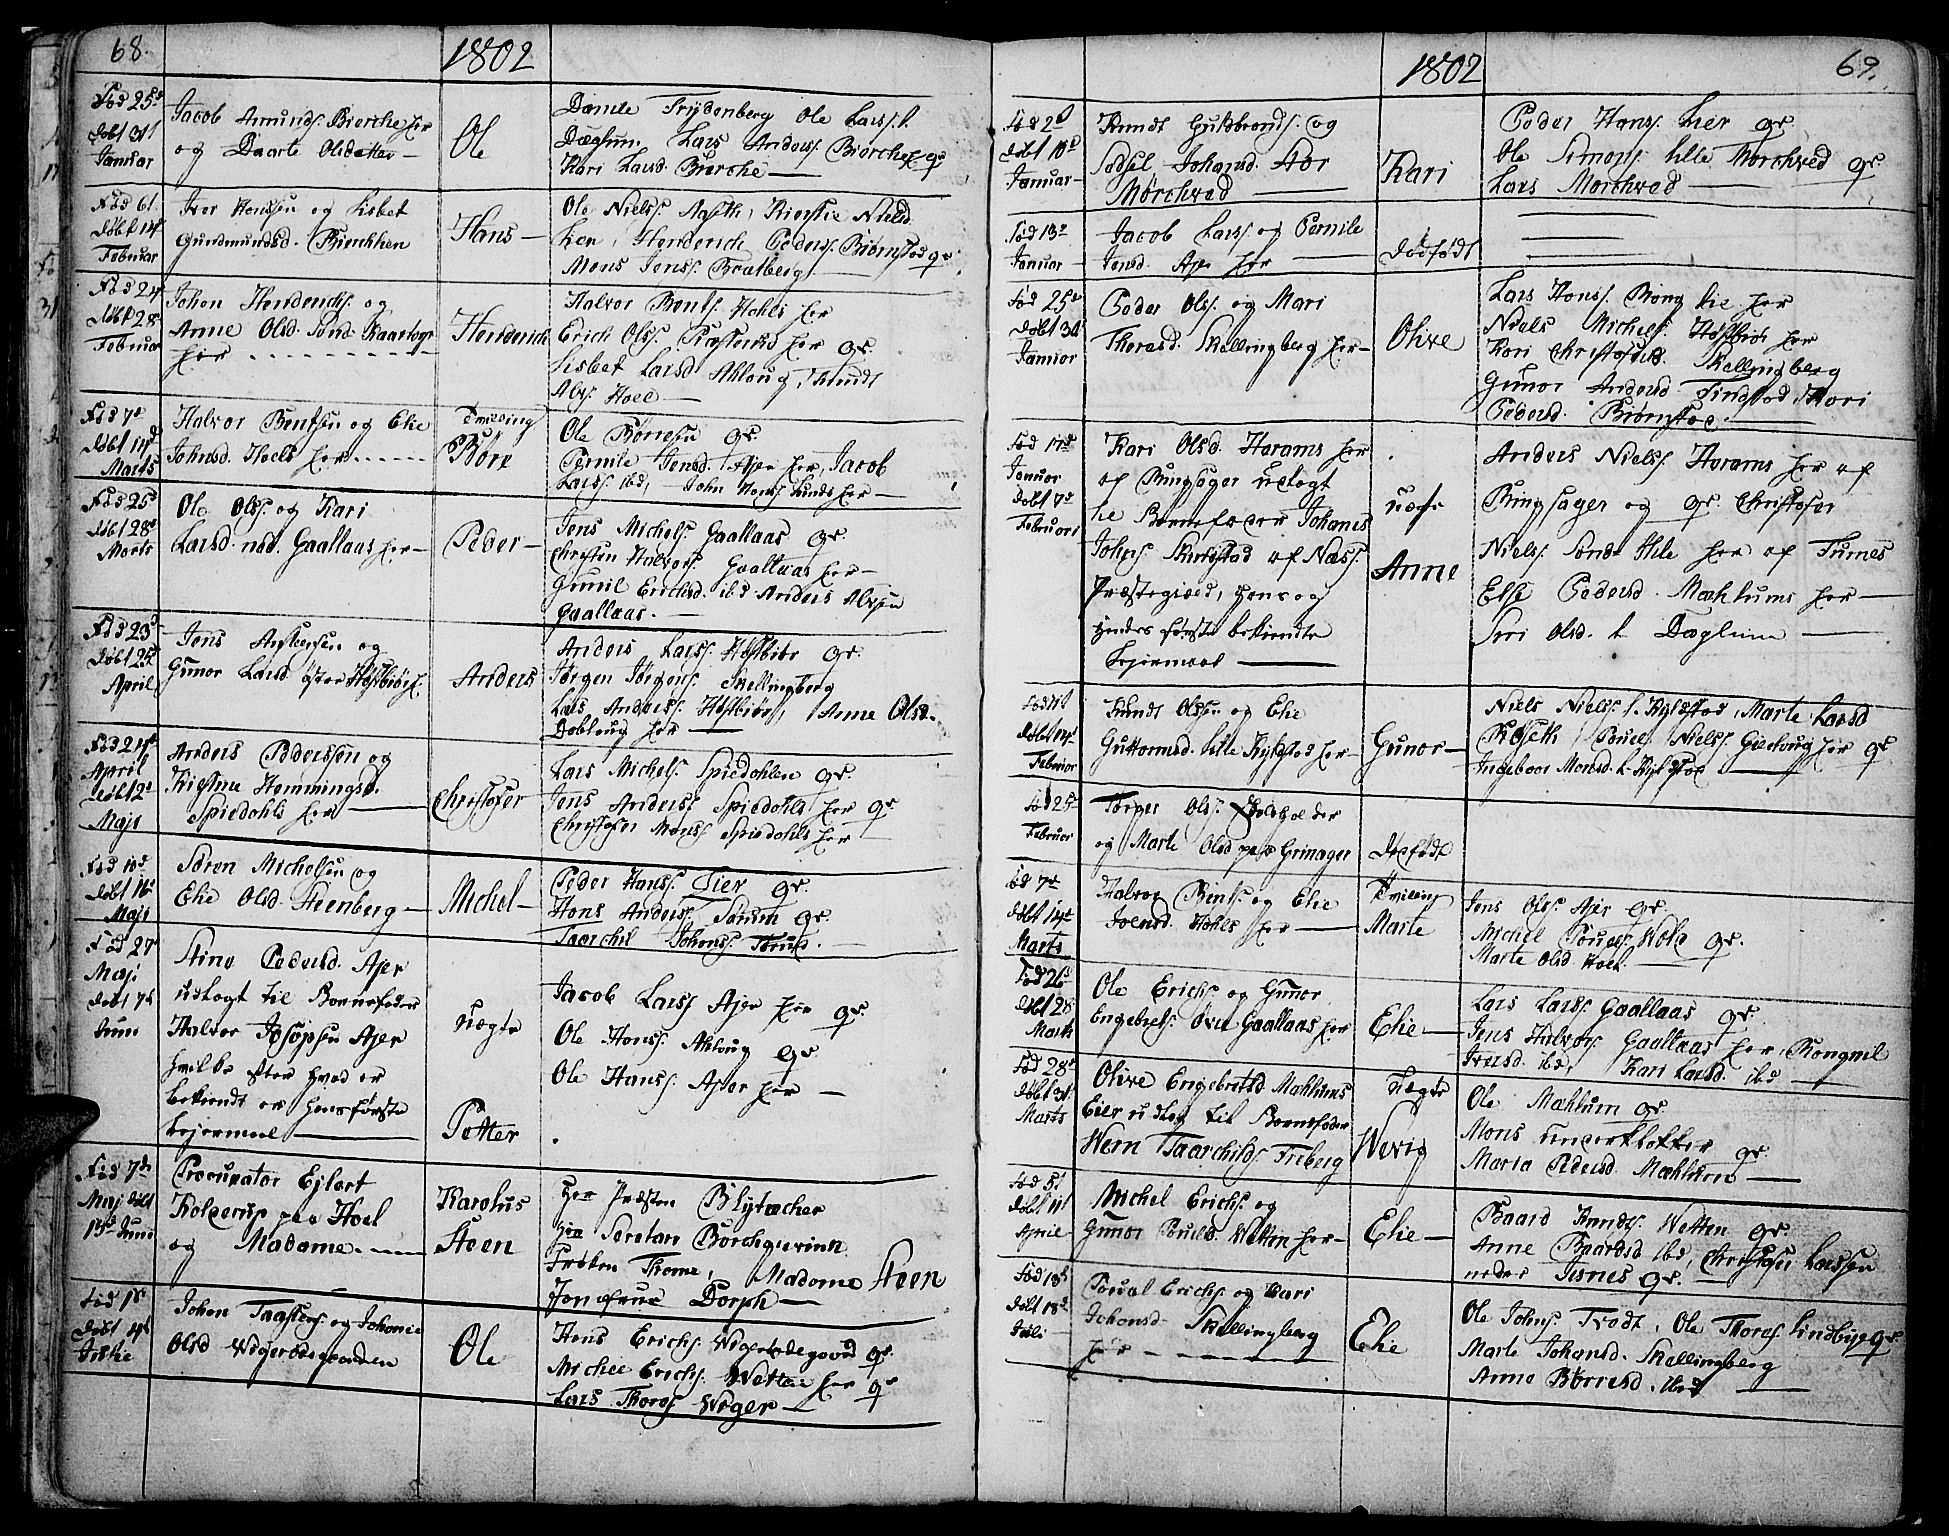 68.
1802
Fød 25d
døbt 31t
Januar
Jacob Amunds. Biørche her
og Daarte Olsdatter —
Ole
Lars Anders. Biørche gr
Kari Larsd. Biørche —
Fød 6t.
døbt 14
Februar
Iver Hansen og Lisbet
Gundmundsd. Bierchhen
Hans —
Ole Niels. Aaseth, Kierstie Nielsd.
Henderich Peders. Biørnstad gr
Mons Jens. Bratberg
Fød 24
døbt 28
Februar
Johan Henderichs. og
Anne Olsd.
her
Henderich
Halvor Bents. Hohls her
Erich Ols. her gr.
Lisbet Larsd. Ahloug, Knudt
Hoel —
Fød 7d
døbt 14d
Marts
Halvor Bentsen og Elie
Johnsd. Hoels her
Tvilling
Børe
Ole Børresen gr.
Pernile Jensd. Ajer her, Jacob
Lars. ibd, John Hans. Lunds her —
Fød 25d
døbt 28d
Marts
Ole Ols. og Kari
Larsd. ned. Gaallaas her —
Peder —
Jens Michels. Gaallaas gr.
Christen Halvors. Gaallaas her —
Gunil Erichsd. ibd Anders
Gaallaas. —
Fød 23d
døbt 25d
April
Jens Anstensen og
Gunor Larsd. øster Høstbiør h.
Anders
Anders Lars. Høstbiør gr.
Jørgen Jørgens. Skellingberg
Lars Anders. Høstbiør, Anne Olsd.
Dobloug her —
Fød 24d
April
døbt 2d
Maji
Anders Pedersen og
Kristine Hemmingsd.
Spisdahls her —
Christofer
Lars Michels. Spisdahlen gr.
Jens Anders. Spisdahls her gr
Christofer Mons. Spisdahls her —
Fød 10d
døbt 16d
Maji
Søren Michelsen og
Elie Olsd. Steenberg —
Michel —
Peder Hans. Lier gr.
Hans Anders. Sørum gr.
Taarchil Johans.
Fød 27
Maji
døbt 7d
Juni
Stine Pedersd. Ajer
udlagt til Barnefader
Halvor Josepsen Ajer
hvilke efter hvad er
bekiendt er hans første
Lejermaal —
uægte
Petter
Jacob Lars. Ajer her gr.
Ole Hans. Ahloug gr
Ole Hans. Ajer her —
Fød 7de
Maj døbt
13d Juni
Procurator Ejlert
Kolderup paa Hoel
og Madame —
Karolus
Steen
Her Præsten Blytæcher
Her Secretær Borchgrevink
Frøken Thome, Madame Steen
Jomfrue Dorph —
Fød 1d
døbt 4d
Julie
Johan Taastens. og Johanne
Olsd Wigerødegaarden
Ole
Hans Erichs. Wigerødegaard gr.
Michel Erichs. Wetten her gr
Lars Thores. Wiger —
1802
69.
Fød 2d
døbt 10d
Januar —
Knudt Guldbrands. og
Sedsel Johansd. Stor
Mørchved
Kari
Peder Hans. Lier gr.
Ole Simons. lille Mørchved gr.
Lars Mørchved —
Fød 13d
Januar
Jacob Lars. og Pernile
Jensd. Ajer her —
dødfødt
Fød 25d
døbt 31
Januar
Peder Ols. og Mari
Thorasd. Skellingberg her —
Olive
Lars Hans. Bionglie her
Niels Michels. Høstbiør her
Kari Christofersd. Skellingberg
Gunor Andersd. Finstad, Mari
Pedersd. Biørnstad —
Fød 17d
Januar
døbt 7d
Februari
Kari Olsd. Harams her
af Ringsager udlagt
til Barnefader Johanes
Johns. Skredstad af Næss.
Præstegield, hans og
hendes første bekiendte
Lejermaal —
uægte
Anne
Anders Niels. Harams her af
Ringsager og gr. Christofer
Niels. Sønde Hele her af Furnes
Else Pedersd. Mæhlums her —
Siri Olsd. L Dæglum —
døbt 14d
Februar
Knudt Olsen og Elie
Guttormsd. lille Kyldstad her —
Gunor —
Niels Niels. l. Kyldstad, Marte Larsd
Røseth, Pouel Niels. Gierloug her gr
Ingeboor Monsd. l. Kyldstad —
Fød 25
Februar
Torger Ols. Skoleholder
og Marte Olsd paa Grimager
Dødfødt
Fød 7d
døbt 14d
Marts
Halvor Bents. og Elie
Joensd. Hohls her —
Tvilling
Marte
Jens Ols. Ajer gr.
Michel Pouels. Hole gr.
Marte Olsd Hoel —
Fød 26d
døbt 28
Marts
Ole Erichs. og Gunor
Engebrets. øvre Gaallaas her
Elie —
Lars Lars. Gaallaas gr.
Jens Halvors. Gaallaas her, Rongnil
Iversd. ibd, Kari Larsd. ibd —
Fød 28d
døbt 31
Marts
Olive Engebretsd Mæhlums
Eier udlag til Barnefader
Wern Taarchilds. Friberg
uægte
Werig
Ole Mæhlum gr.
Mons underklokker gr.
Maria Pedersd Mæhlum —
Fød 5t
døbt 11t
April
Michel Erichs. og
Gunor Pouelsd. Wetten her —
Elie —
Baard Knuds. Wetten gr.
Anne Baardsd ibd, Christofer Larsen
neder Disnes gr. —
Fød 13d
døbt 18d
Juli —
Poual Erichs. og Kari
Johansd. Skellingberg
her —
Elie
Ole Johns. Trødt, Ole Thores. Lindbye gr.
Marte Johansd. Skellingberg
Anne Børresd. ibd —